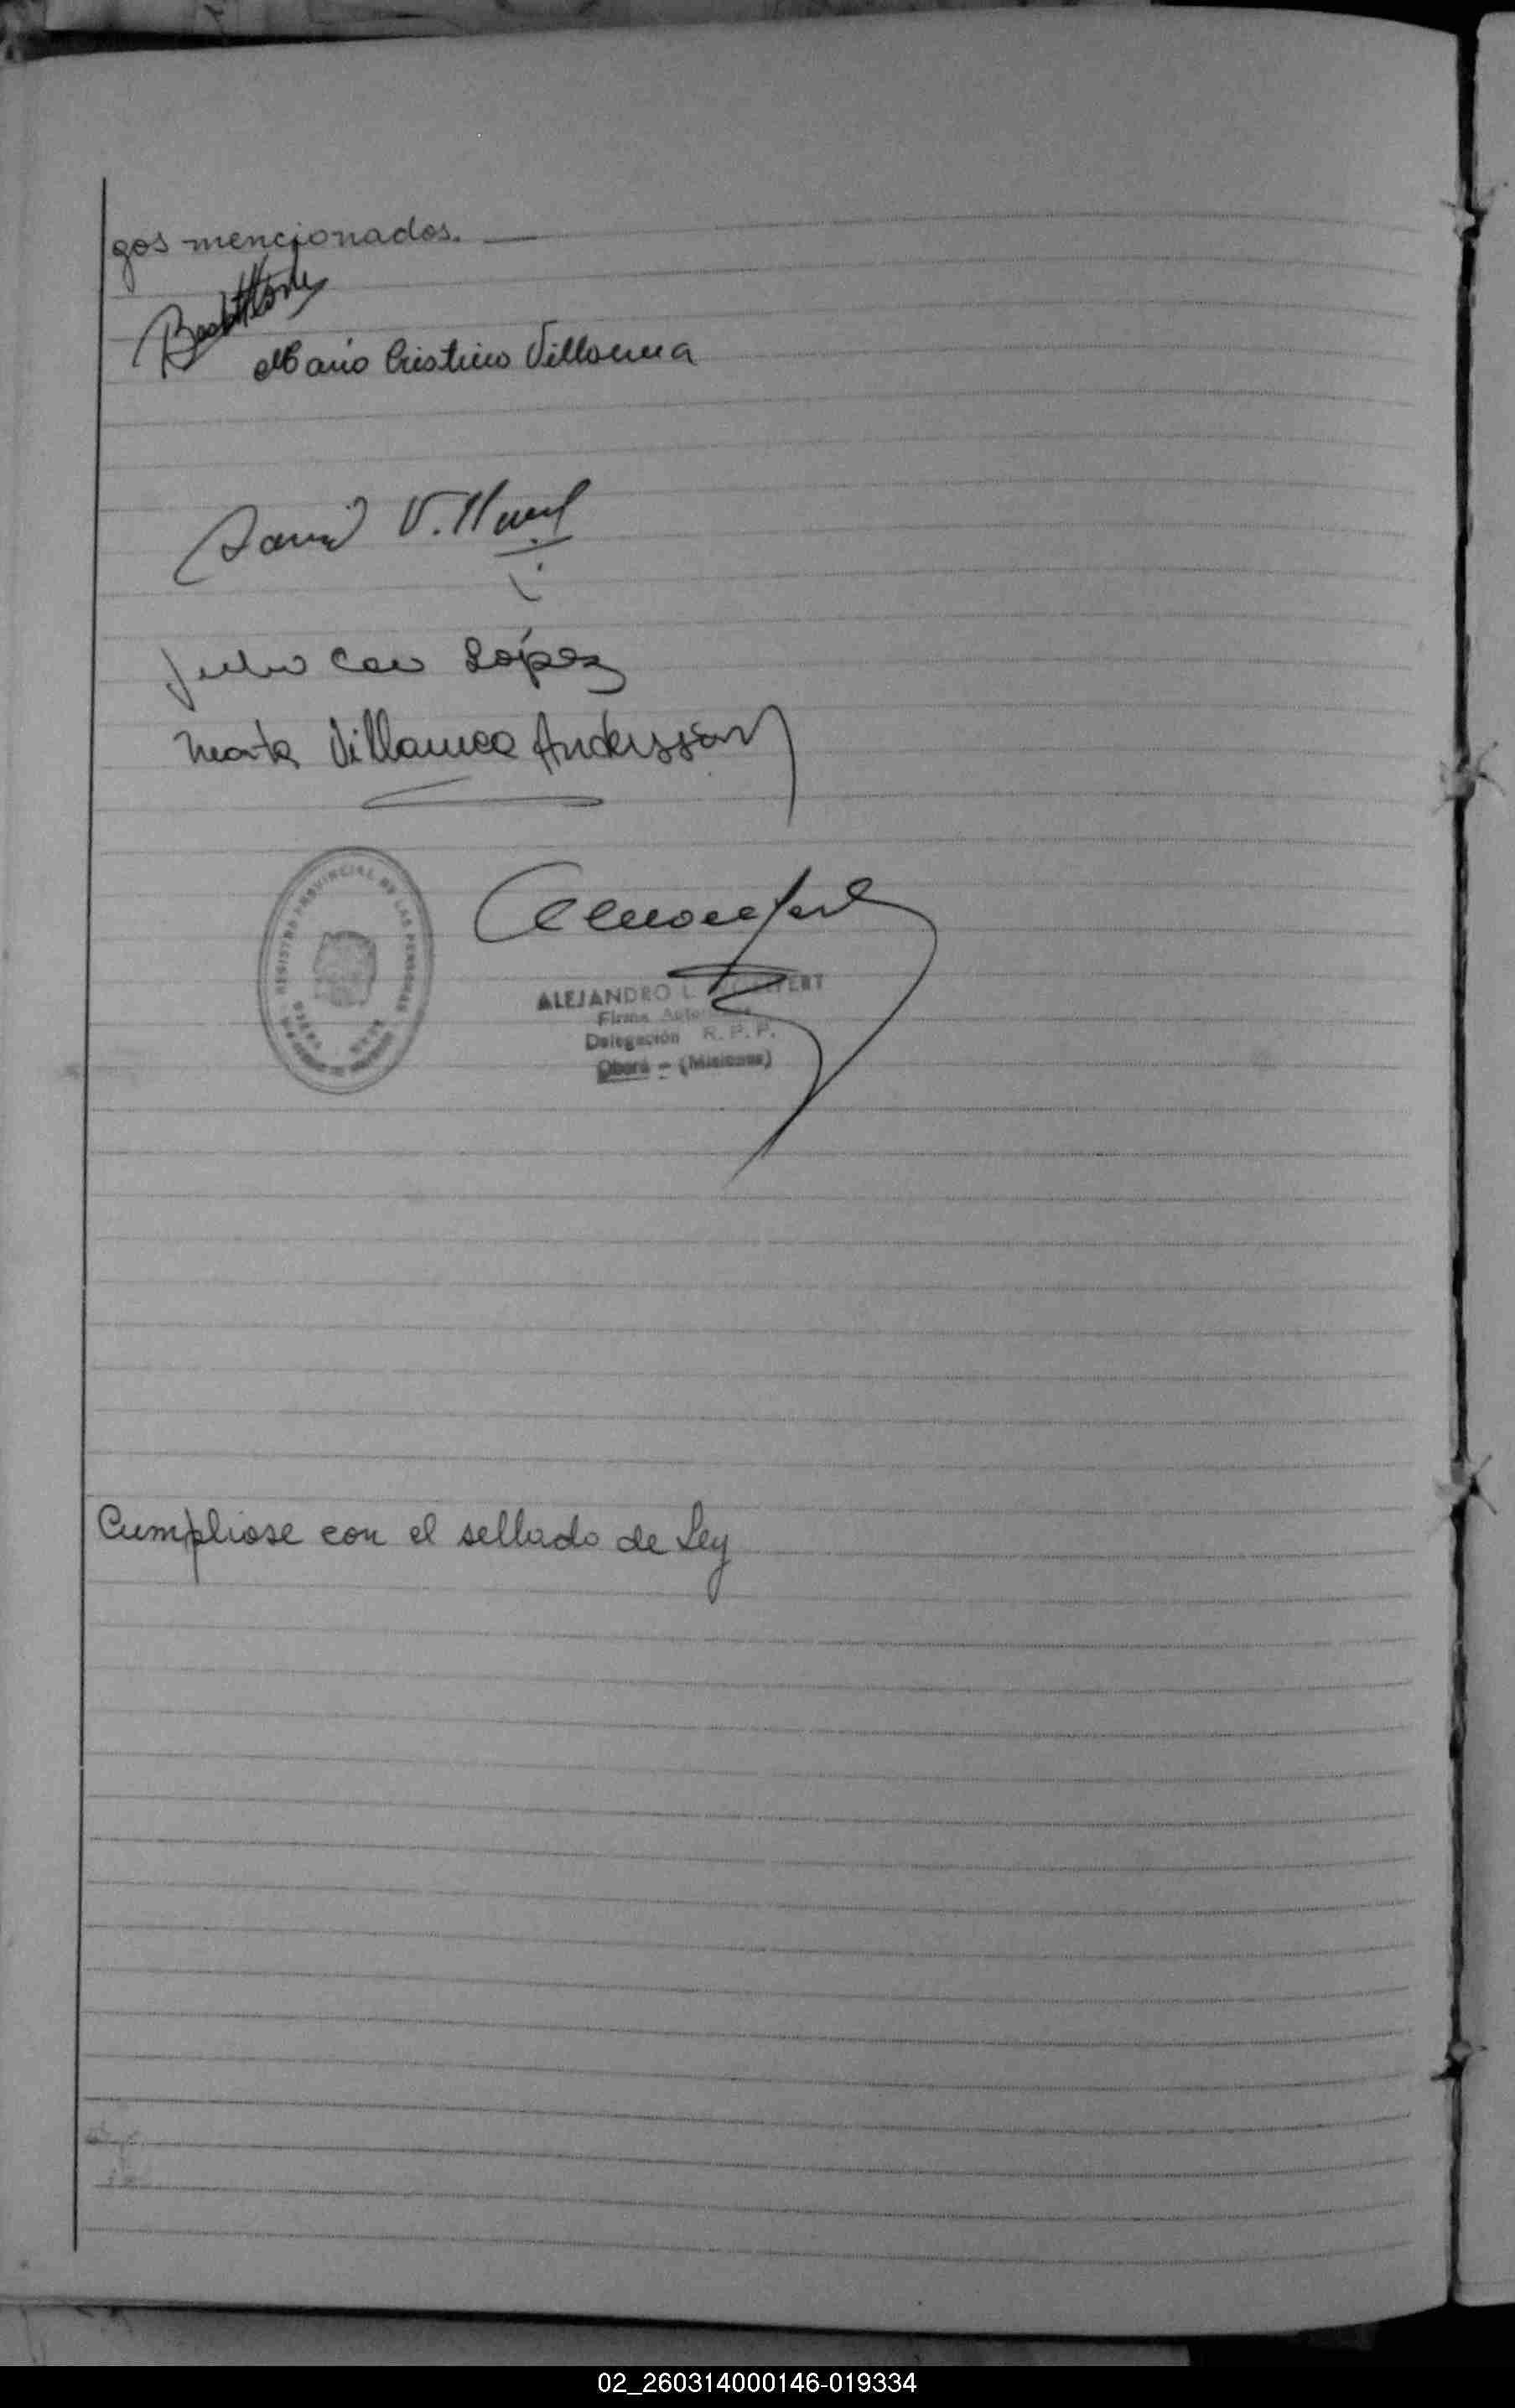 gos mencionados. —
Mario Cristino Villanueva
David
Julio Cesar López
Marta Villanueva Andersson
REGISTRO PROVINCIAL DE LAS PERSONAS
ALEJANDRO L.
Firma
Delegación R. P. P.
Oberá - (Misiones)
Cumpliose con el sellado de Ley
02_260314000146-019334